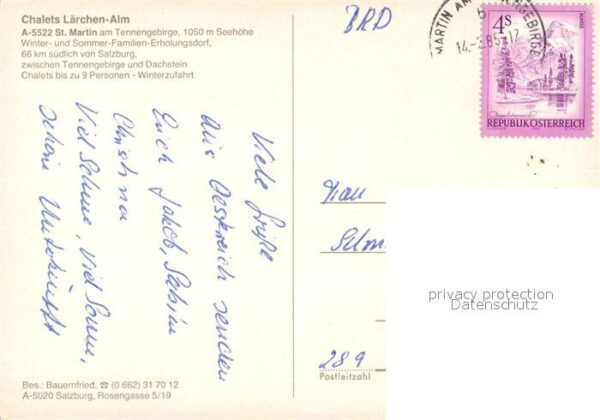 Chalets Lärchen-Alm
A-5522 St. Martin am Tennengebirge, 1050 m Seehöhe
Winter- und Sommer-Familien-Erholungsdorf,
66 km südlich von Salzburg,
zwischen Tennengebirge und Dachstein
Chalets bis zu 9 Personen - Winterzufahrt
BRD
MARTIN AM TENNENGEBIRGE
5
14.-2.85-17
4S
REPUBLIK ÖSTERREICH
Viele Grüße
aus Oesterreich senden
Euch Jakob, Sabin
Christina
Viel Schnee, Viel Sonne,
schöne Unterkunft
Frau
289
Postleitzahl
privacy protection
Datenschutz
Bes.: Bauernfried, ☎ (0 662) 31 70 12
A-5020 Salzburg, Rosengasse 5/19